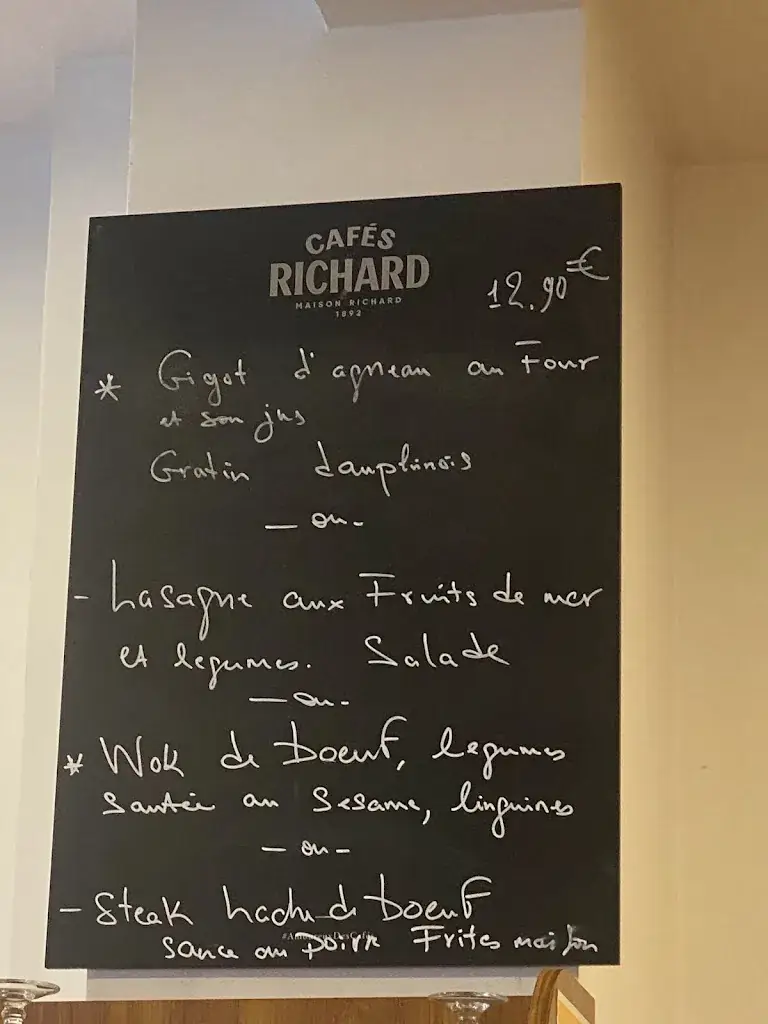 CAFÉS
RICHARD
MAISON RICHARD
1892
12.90€
* Gigot d'agneau au Four
et son jus
Gratin dauphinois
— ou -
- Lasagne aux Fruits de mer
et legumes. Salade
— ou -
* Wok de boeuf, legumes
Sautée au Sesame, linguines
— ou —
- Steak haché de boeuf
#AmoureuxDesCafés
Sauce au poivre Frites maison